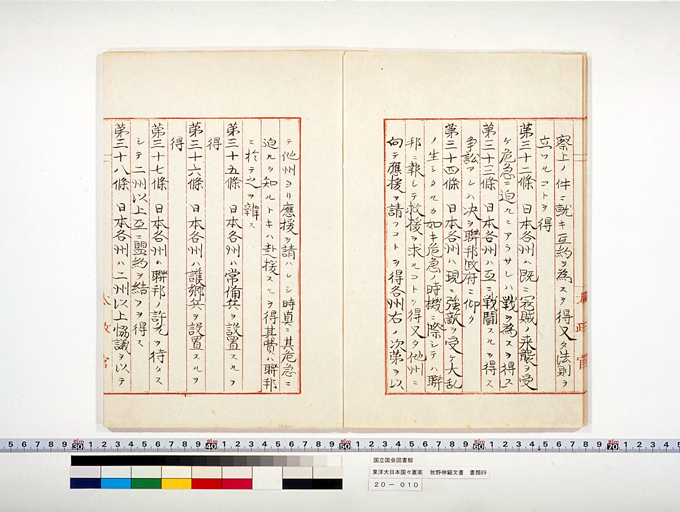 察上ノ件ニ就キ互約ヲ為スヲ得又タ法則ヲ
立ツルコトヲ得
第三十二條 日本各州ハ既ニ寇賊ノ来襲ヲ受
ケ危急ニ迫ルニアラサレハ戰ヲ為スヲ得ス
第三十三條 日本各州ハ互ニ戰鬪スルヲ得ス
争訟アレハ決ヲ聯邦政府ニ仰ク
第三十四條 日本各州ハ現ニ強敵ヲ受ケ大乱
ノ生シタルカ如キ危急ノ時機ニ際シテハ聯
邦ニ報シテ救援ヲ求ルコトヲ得又タ他州ニ
向テ應援ヲ請フコトヲ得各州右ノ次第ヲ以
テ他州ヨリ應援ヲ請ハレシ時真ニ其危急ニ
迫ルヲ知ルトキハ赴援スルヲ得其費ハ聯邦
ニ於テ之ヲ辨ス
第三十五條 日本各州ハ常備兵ヲ設置スルヲ
得
第三十六條 日本各州ハ護郷兵ヲ設置スルヲ
得
第三十七條 日本各州ハ聯邦ノ許允ヲ待タス
シテ二州以上互ニ盟約ヲ結フヲ得ス
第三十八條 日本各州ハ二州以上協議ヲ以テ
太政官
国立国会図書館
東洋大日本国々憲案 牧野伸顕文書 書類89
20-010